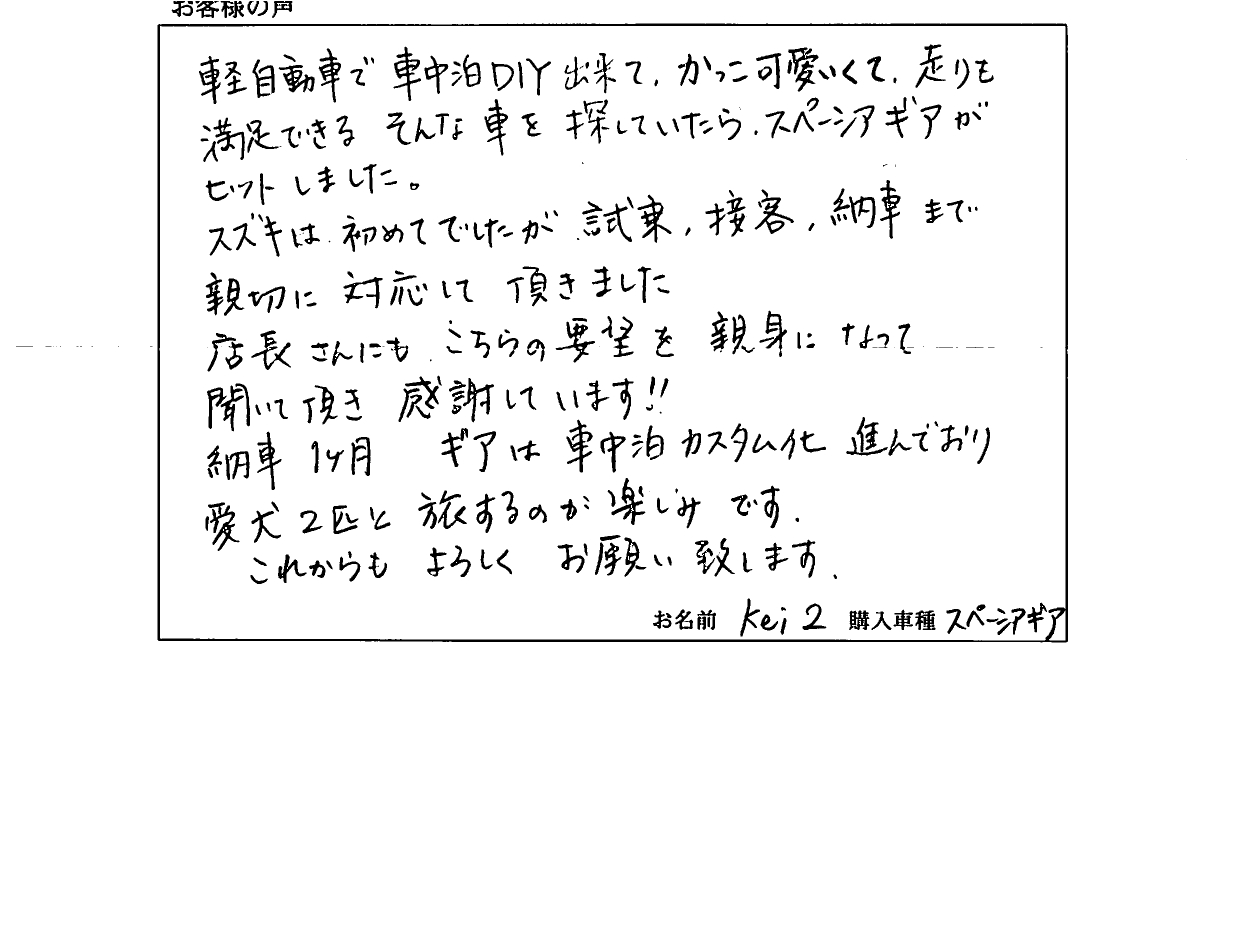 お客様の声
軽自動車で 車中泊DIY 出来て、かっこ可愛いくて、走りも
満足できる そんな車を 探していたら、スペーシアギアが
ヒットしました。
スズキは 初めてでしたが 試乗、接客、納車まで
親切に 対応して 頂きました
店長さんにも こちらの要望を 親身になって
聞いて頂き 感謝しています!!
納車 1ヶ月 ギアは 車中泊カスタム化 進んでおり
愛犬2匹と 旅するのが楽しみです。
これからも よろしく お願い致します。
お名前 Kei 2 購入車種 スペーシアギア